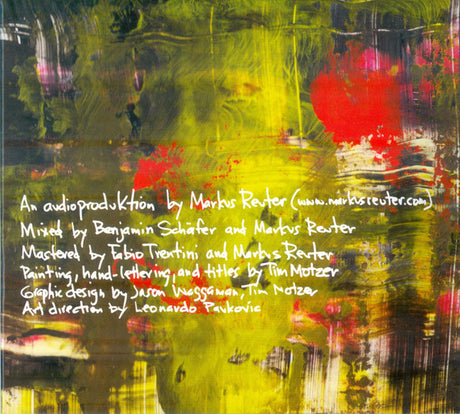 An audioproduktion by Markus Reuter (www.markusreuter.com)
Mixed by Benjamin Schäfer and Markus Reuter
Mastered by Fabio Trentini and Markus Reuter
Painting, hand-lettering, and titles by Tim Motzer
Graphic design by Jason Waggaman, Tim Motzer
Art direction by Leonardo Pavkovic